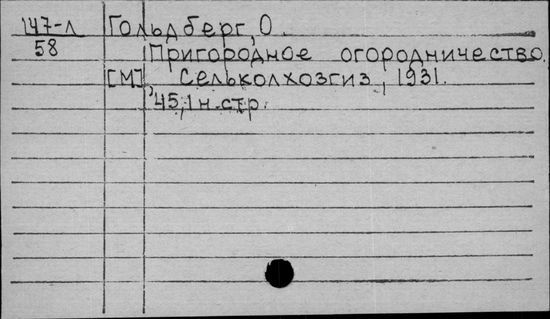 147-Л Гольдберг, О.
58 Пригородное огородничество.
[М], Сельколхозгиз, 1931.
45, 1 н. стр.